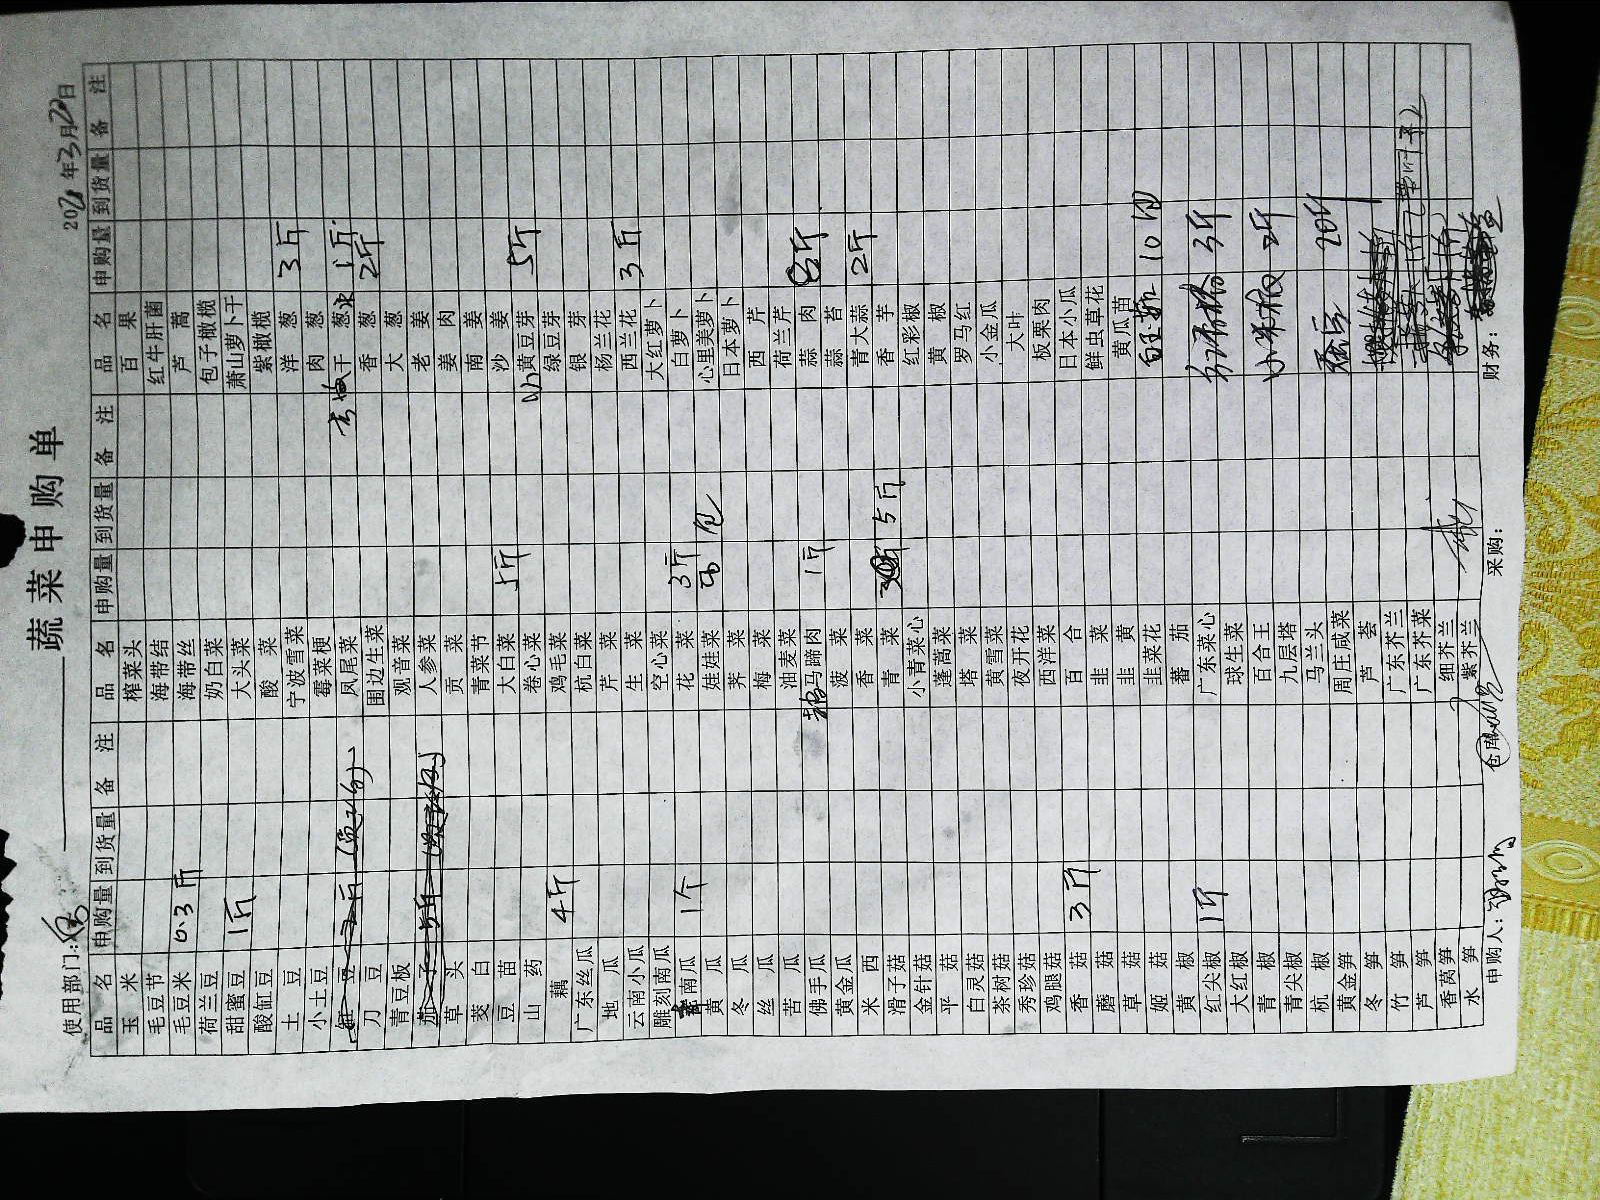 蔬菜申购单
使用部门: 2021年3月22日
品名 申购量 到货量 备注 品名 申购量 到货量 备注 品名 申购量 到货量 备注
玉米 榨菜头 百果
毛豆节 海带结 红牛肝菌
毛豆米 0.3斤 海带丝 芦蒿
荷兰豆 奶白菜 包子橄榄
甜蜜豆 1斤 大头菜 萧山萝卜干
酸缸豆 酸菜 紫橄榄
土豆 宁波雪菜 洋葱 3斤
小土豆 霉菜梗 肉葱
豇豆 凤尾菜 干葱 1斤
刀豆 围边生菜 香葱 2斤
青豆板 观音菜 大葱
茄子 5斤 人参菜 老姜
草头 贡菜 姜肉
茭白 青菜节 南姜
豆苗 大白菜 5斤 沙姜
山药 卷心菜 小黄豆芽 5斤
藕 4斤 鸡毛菜 绿豆芽
广东丝瓜 杭白菜 银芽
地瓜 芹菜 杨兰花
云南小瓜 生菜 西兰花 3斤
雕刻南瓜 空心菜 大红萝卜
南瓜 1个 花菜 3斤 白萝卜
黄瓜 娃娃菜 5包 心里美萝卜
冬瓜 荠菜 日本萝卜
丝瓜 梅菜 西芹
苦瓜 油麦菜 荷兰芹
佛手瓜 马蹄肉 1斤 蒜肉 8斤
黄金瓜 菠菜 蒜苔
米西 香菜 青大蒜 2斤
滑子菇 青菜 5斤 香芋
金针菇 小青菜心 红彩椒
平菇 蓬蒿菜 黄椒
白灵菇 塔菜 罗马红
茶树菇 黄雪菜 小金瓜
秀珍菇 夜开花 大叶
鸡腿菇 西洋菜 板栗肉
香菇 3斤 百合 日本小瓜
蘑菇 韭菜 鲜虫草花
草菇 韭黄 黄瓜苗
姬菇 韭菜花 白玉菇 10包
黄椒 蕃茄
红尖椒 1斤 广东菜心 3斤
大红椒 球生菜
青椒 百合王 小米椒 2斤
青尖椒 九层塔
杭椒 马兰头 20斤
黄金笋 周庄咸菜
冬笋 芦荟
竹笋 广东芥兰
芦笋 广东芥菜
香莴笋 细芥兰
水笋 紫芥兰
申购人: 仓库 采购: 财务: